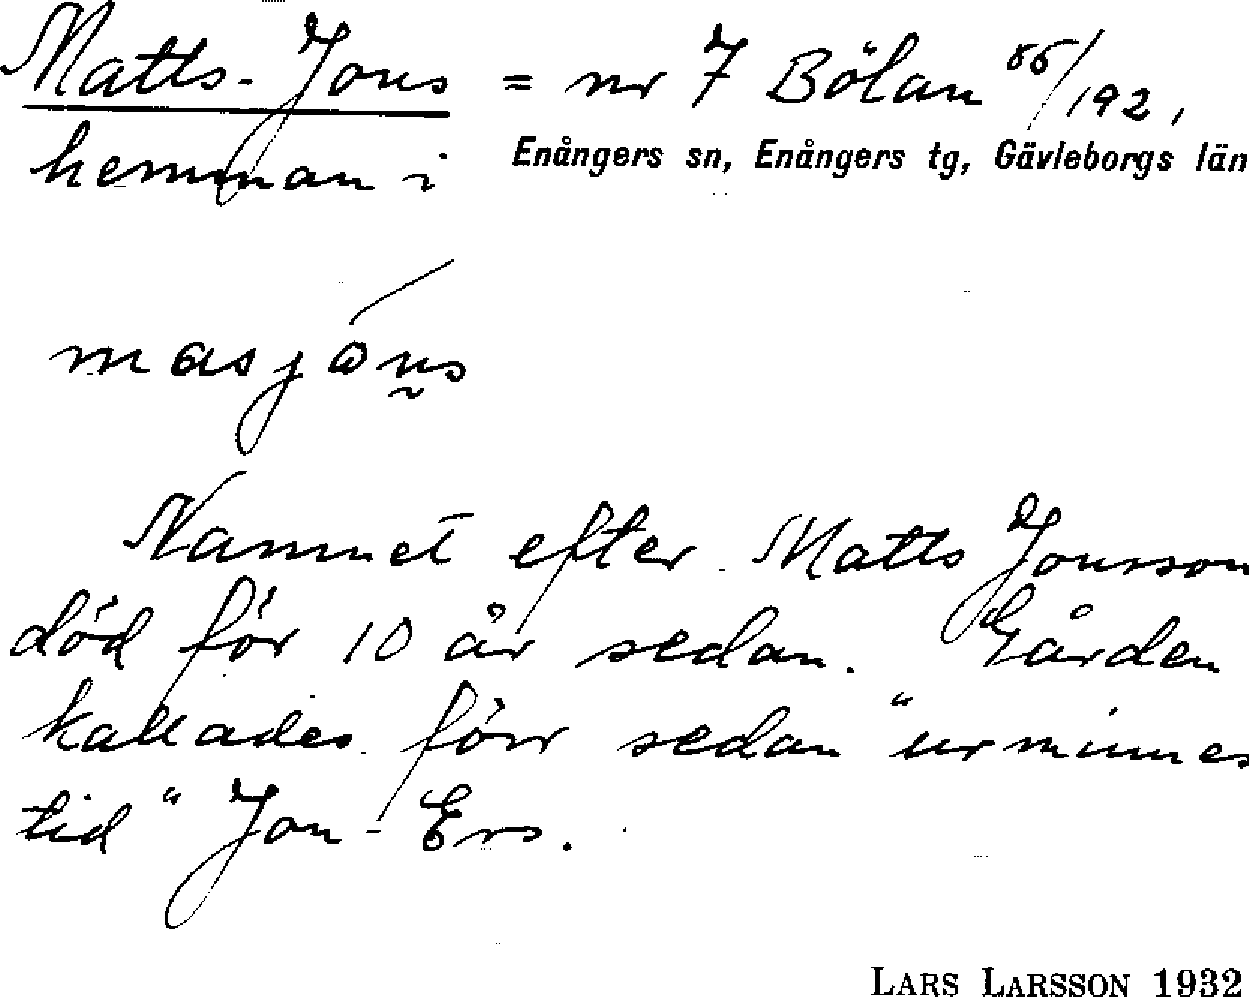 Matts-Jons = nr 7 Bölan 86/192,
hemman i Enångers sn, Enångers tg, Gävleborgs län
masjóns
Namnet efter Matts Jonsson
död för 10 år sedan. Gården
kallades förr sedan "urminnes
tid" Jon-Ers.
LARS LARSSON 1932